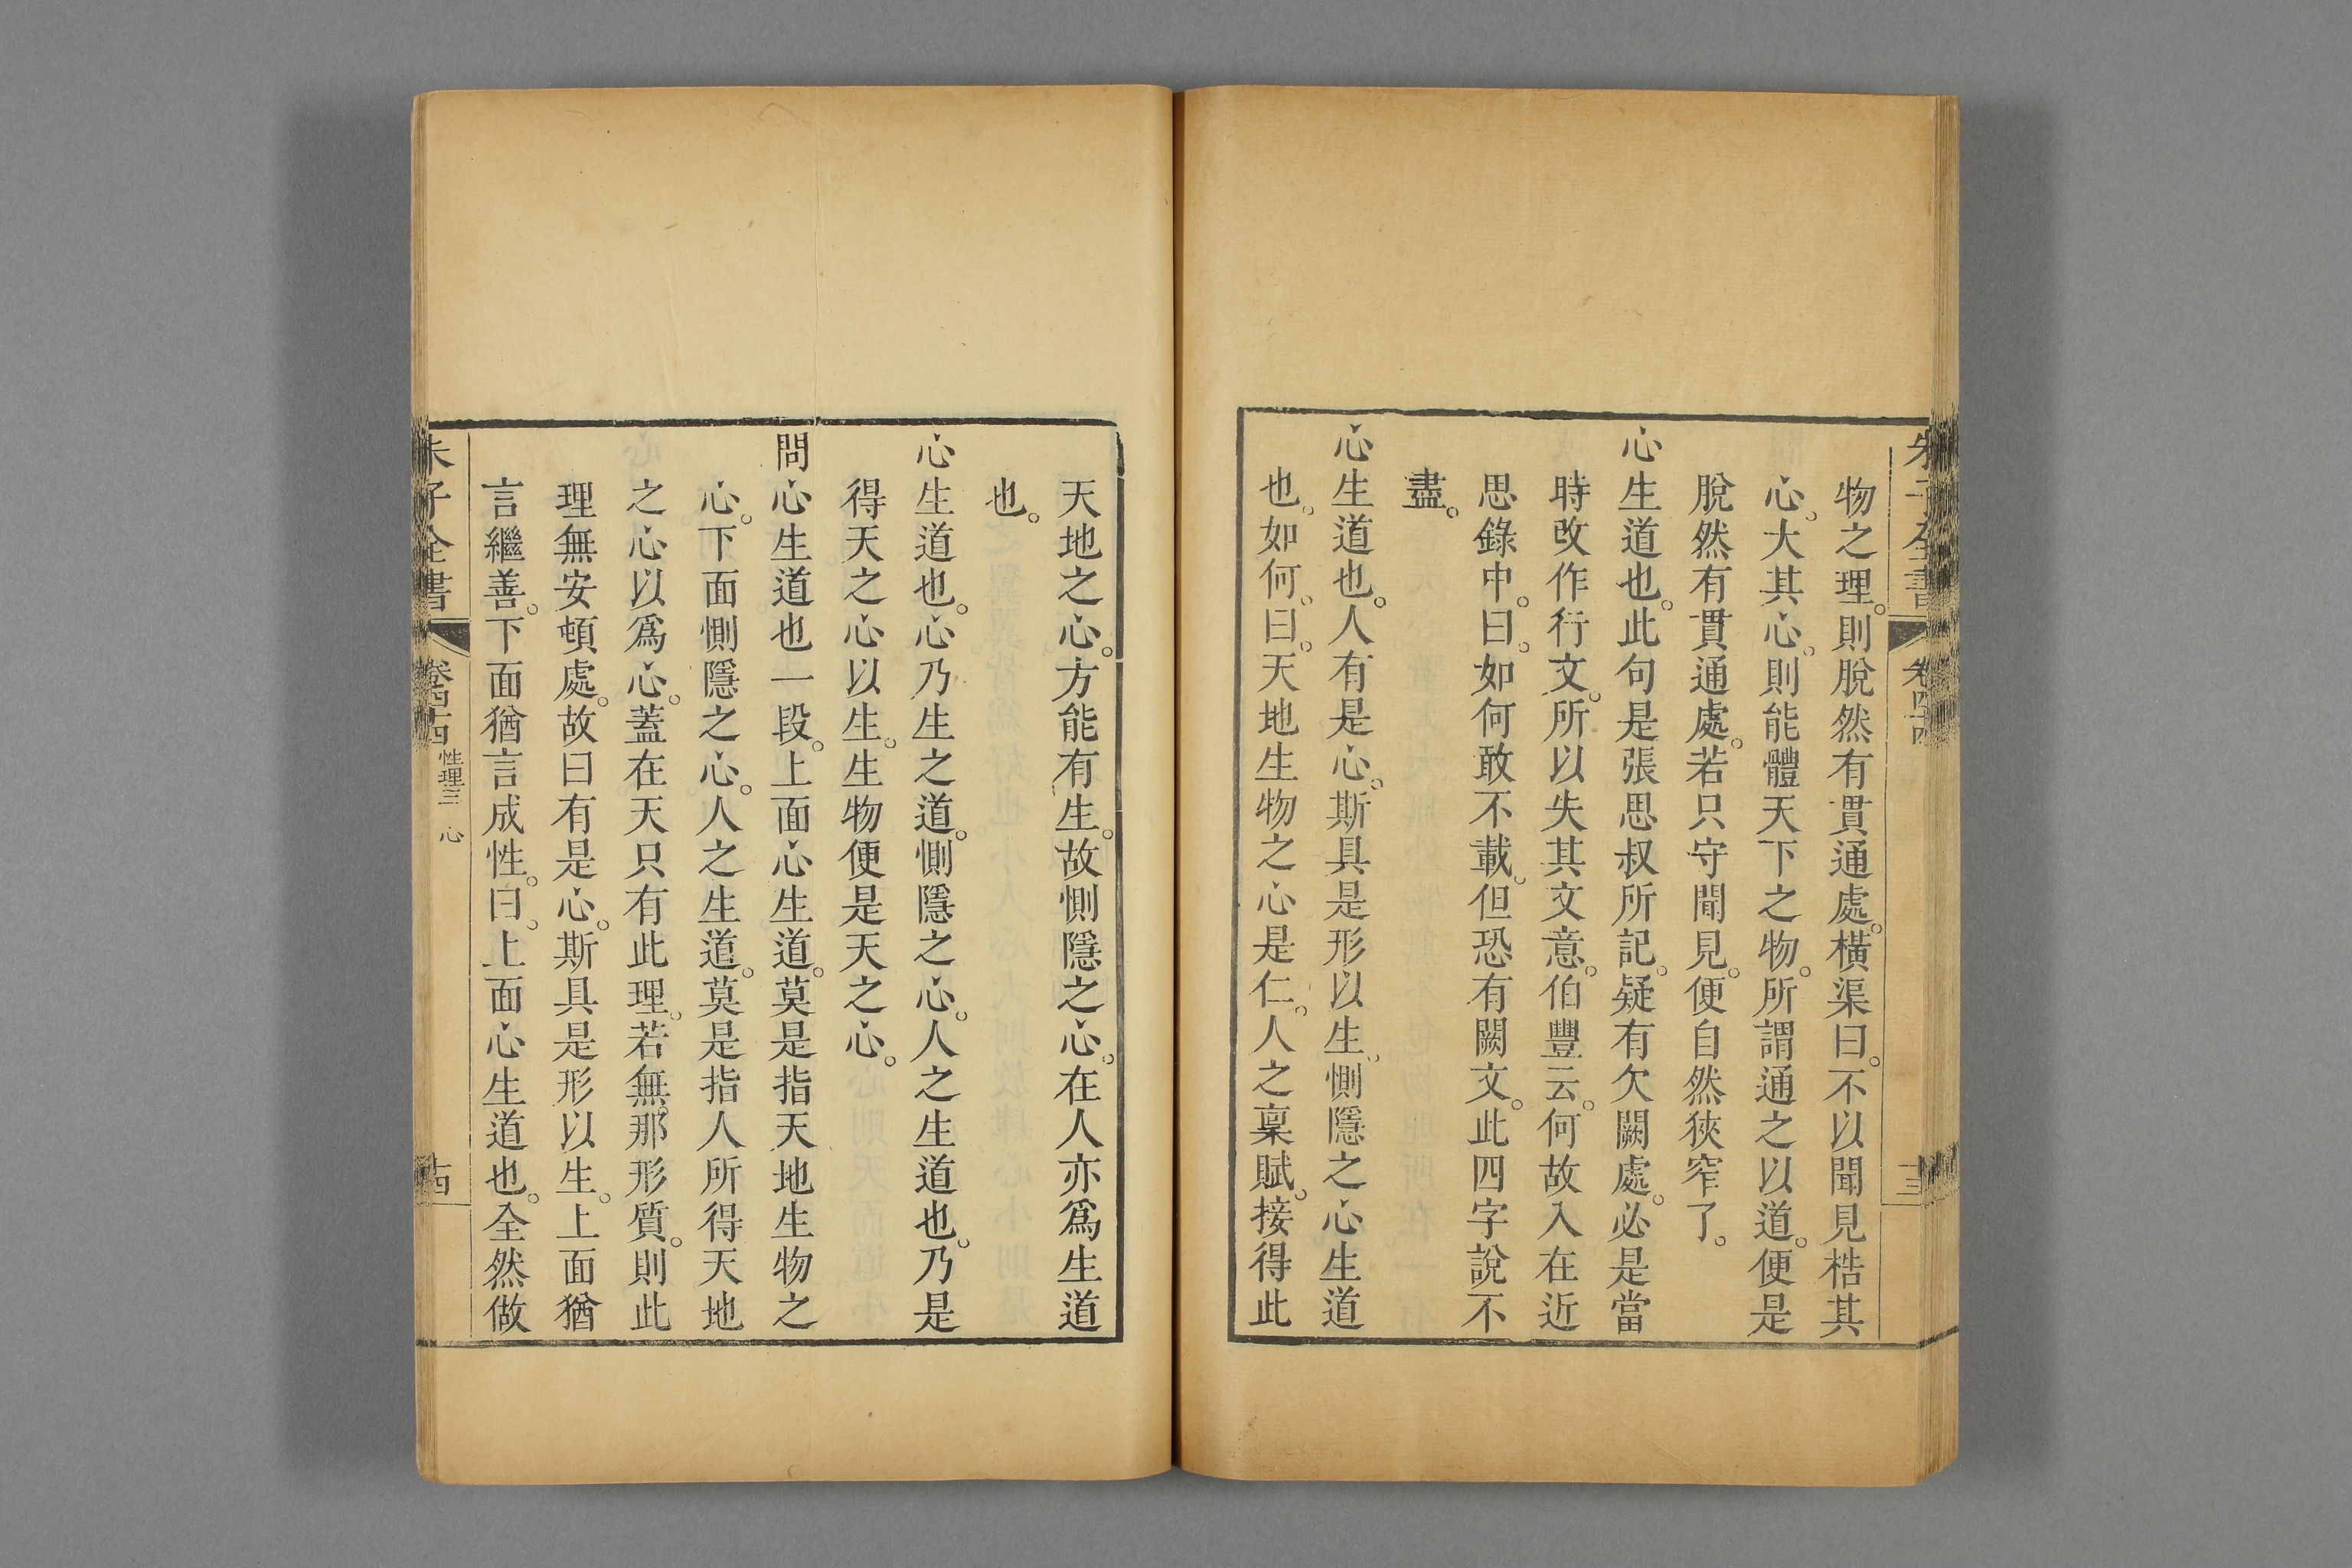 物之理。則脫然有貫通處。橫渠曰。不以聞見梏其
心。大其心。則能體天下之物。所謂通之以道。便是
脫然有貫通處。若只守聞見。便自然狹窄了。
心生道也。此句是張思叔所記。疑有欠闕處。必是當
時改作行文。所以失其文意。伯豐云。何故入在近
思錄中。曰。如何敢不載。但恐有闕文。此四字說不
盡。
心生道也。人有是心。斯具是形以生。惻隱之心生道
也。如何。曰。天地生物之心是仁。人之稟賦。接得此
天地之心。方能有生。故惻隱之心。在人亦爲生道
也。
心生道也。心乃生之道。惻隱之心。人之生道也。乃是
得天之心以生。生物便是天之心。
問心生道也一段。上面心生道。莫是指天地生物之
心。下面惻隱之心。人之生道。莫是指人所得天地
之心以爲心。蓋在天只有此理。若無那形質。則此
理無安頓處。故曰有是心。斯具是形以生。上面猶
言繼善。下面猶言成性。曰。上面心生道也。全然做
朱子全書
卷四十四
性理三 心
十四